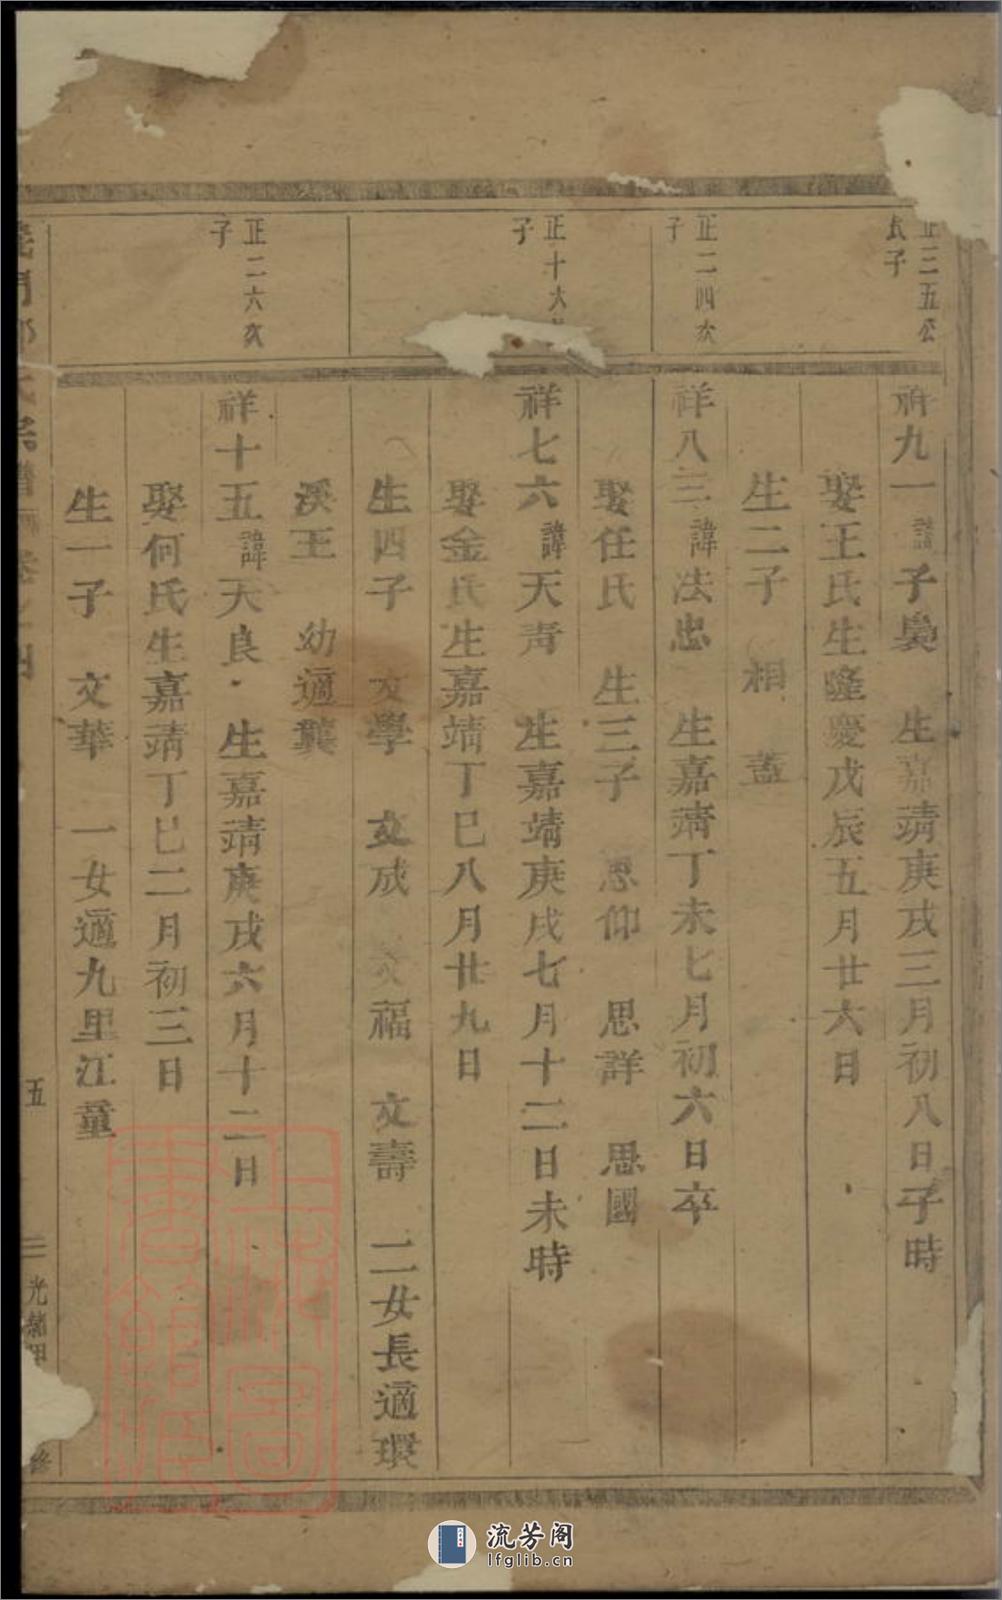 正三五公
長子
祥九一諱子梟 生嘉靖庚戌三月初八日子時
娶王氏生隆慶戊辰五月廿六日
生二子 相 蓋
正二四次
子
祥八三諱法忠 生嘉靖丁未七月初六日卒
娶任氏 生三子 思仰 思詳 思國
正十六
子
祥七六諱天青 生嘉靖庚戌七月十二日未時
娶金氏生嘉靖丁巳八月廿九日
生四子 文學 文成 文福 文壽 二女長適環
溪王 幼適龔
正二六次
子
祥十五諱天良 生嘉靖庚戌六月十二日
娶何氏生嘉靖丁巳二月初三日
生一子 文華 一女適九里江童
五
光緒
修
上海圖書館藏
流芳阁
lfglib.cn